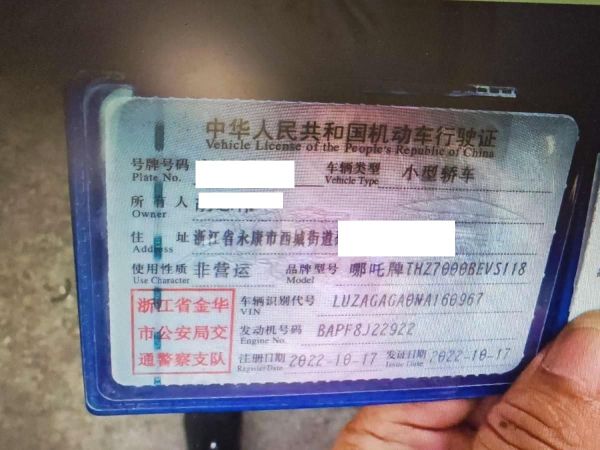 中华人民共和国机动车行驶证
Vehicle License of the People's Republic of China
号牌号码 车辆类型 小型轿车
Plate No. Vehicle Type
所有人
Owner
住址 浙江省永康市西城街道
Address
使用性质 非营运 品牌型号 哪吒牌THZ7000BEVS118
Use Character Model
浙江省金华
市公安局交
通警察支队
车辆识别代号 LUZAGAGA0NA160967
VIN
发动机号码 BAPF8J22922
Engine No.
注册日期 2022-10-17 发证日期 2022-10-17
Register Date Issue Date